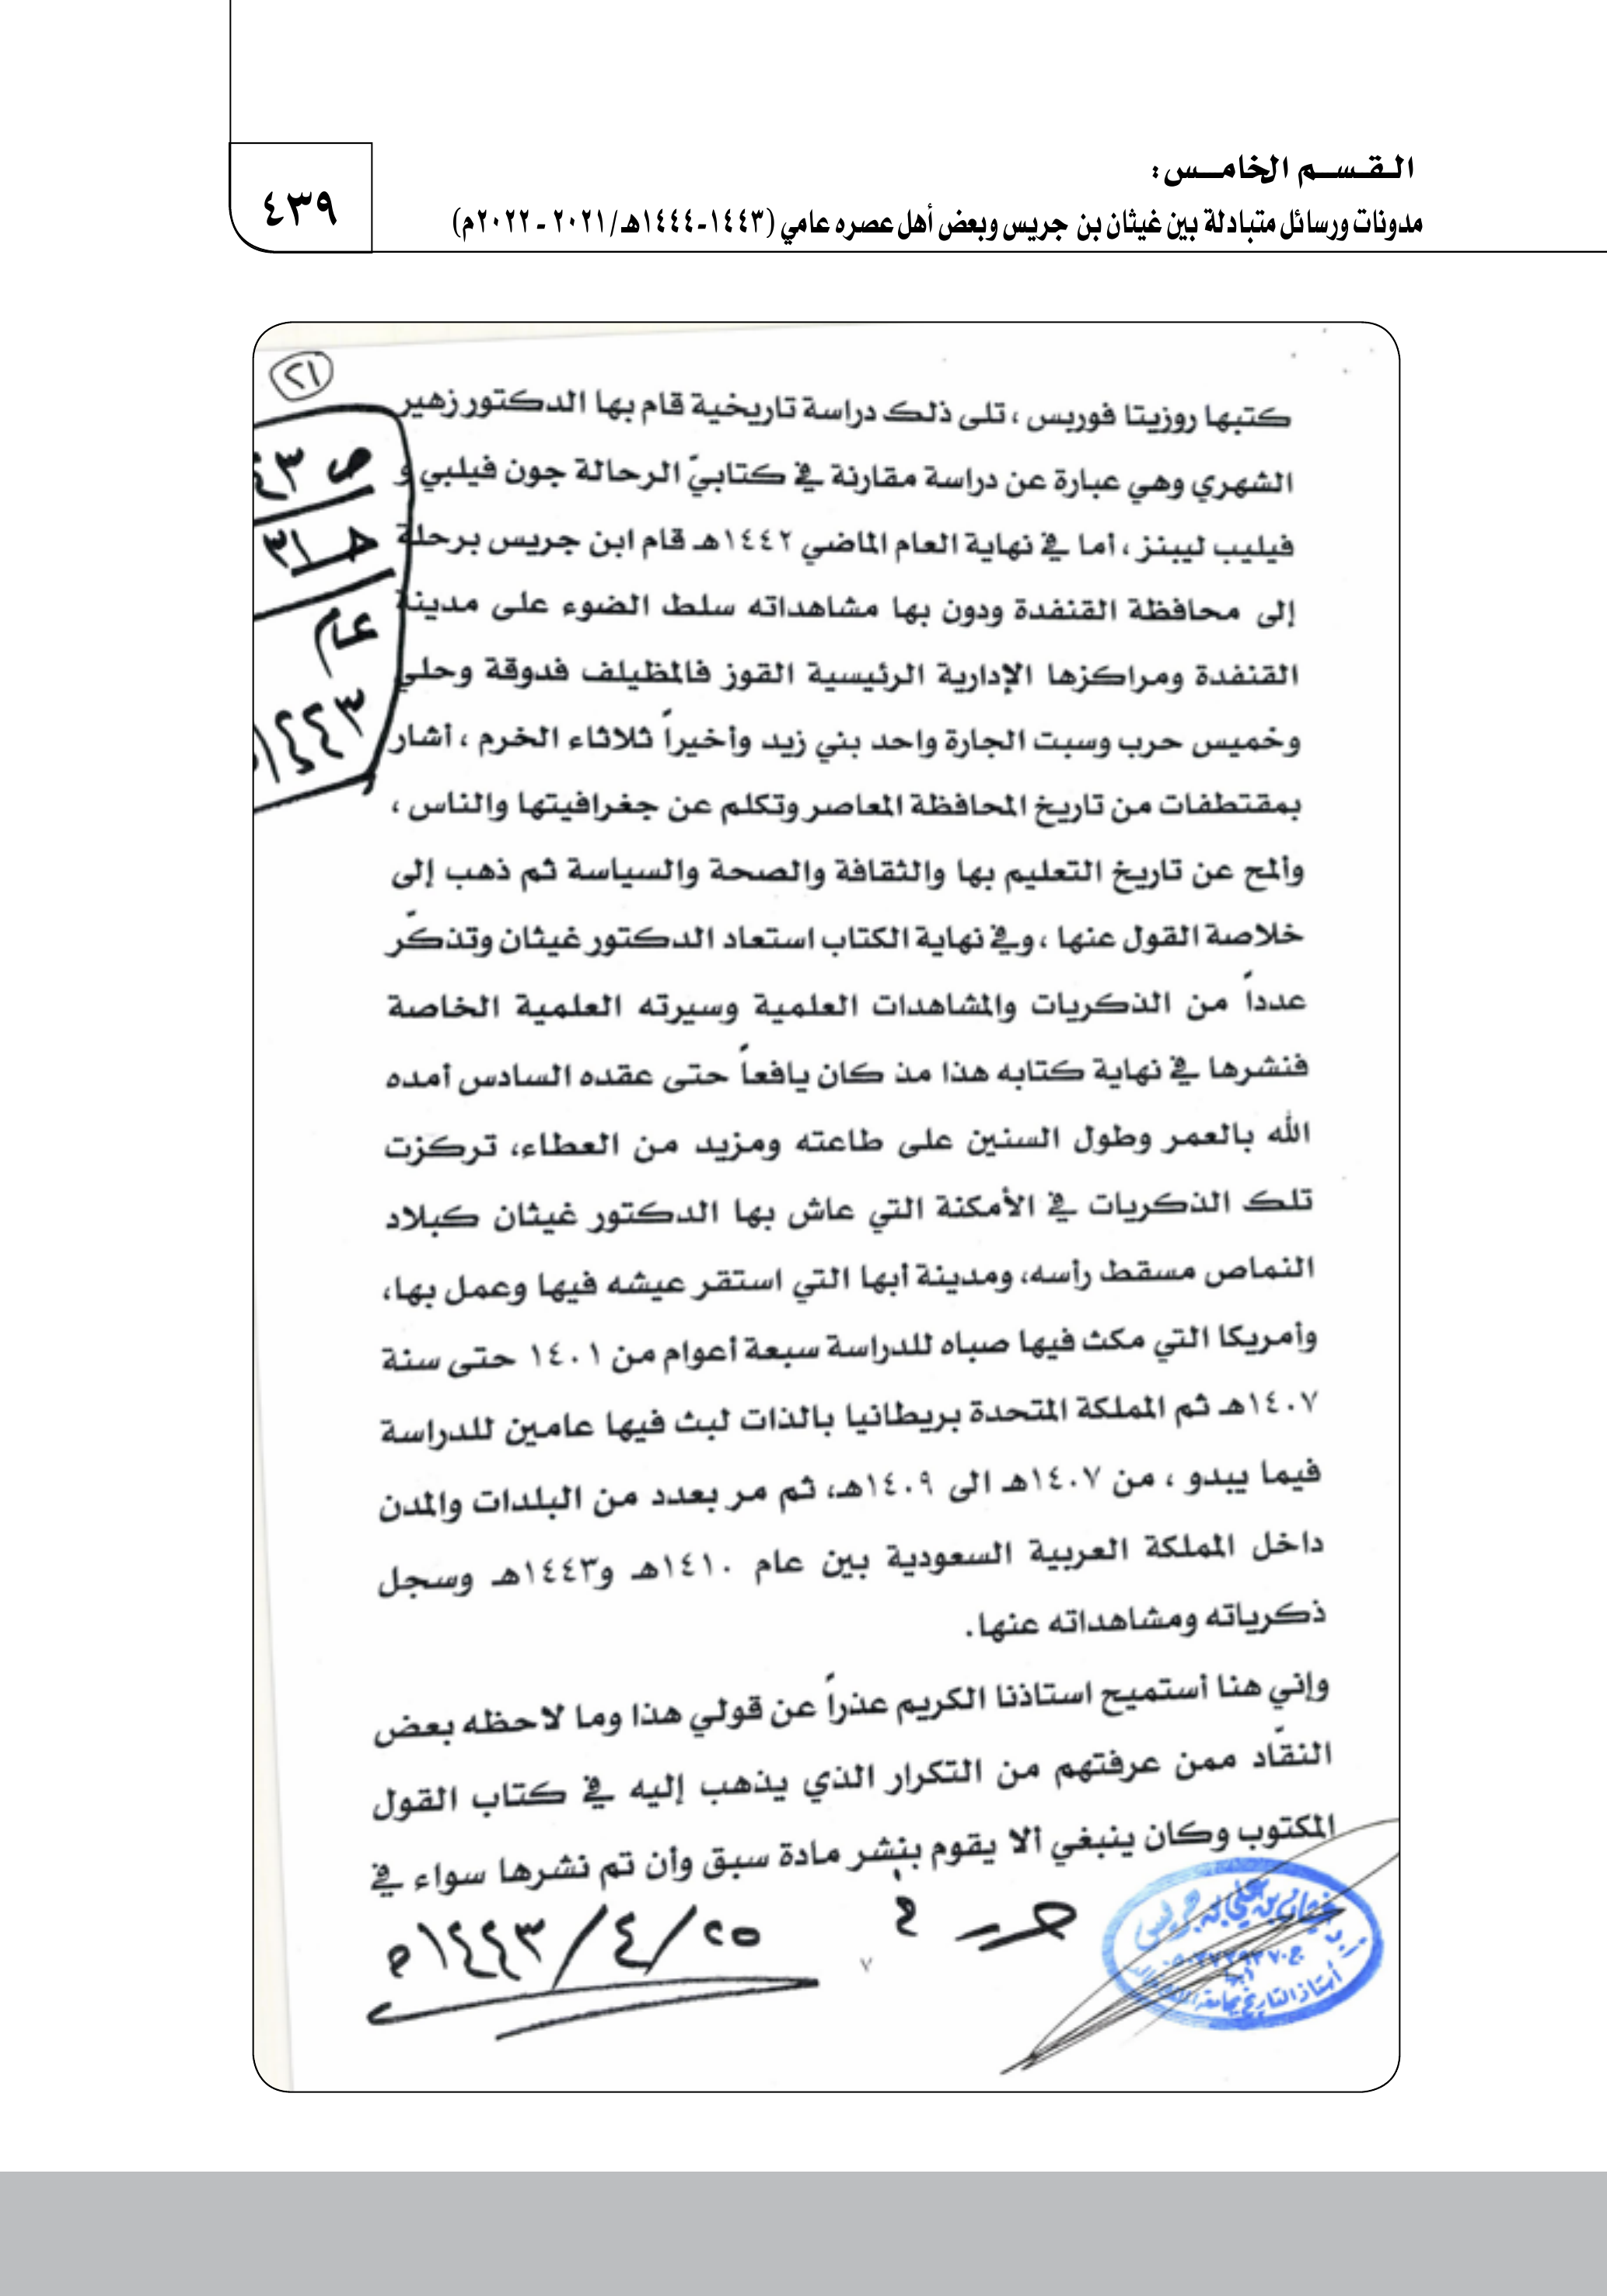 القسم الخامس:
مدونات ورسائل متبادلة بين غيثان بن جريس وبعض أهل عصره عامي (١٤٤٣-١٤٤٤هـ/ ٢٠٢١ - ٢٠٢٢م)
٤٣٩
٢١
كتبها روزيتا فوربس ، تلى ذلك دراسة تاريخية قام بها الدكتور زهير
الشهري وهي عبارة عن دراسة مقارنة في كتابيّ الرحالة جون فيلبي و
فيليب ليبنز ، أما في نهاية العام الماضي ١٤٤٢هـ قام ابن جريس برحلة
إلى محافظة القنفدة ودون بها مشاهداته سلط الضوء على مدينة
القنفدة ومراكزها الإدارية الرئيسية القوز فالمظيلف فدوقة وحلي
وخميس حرب وسبت الجارة واحد بني زيد وأخيراً ثلاثاء الخرم ، أشار
بمقتطفات من تاريخ المحافظة المعاصر وتكلم عن جغرافيتها والناس ،
وألمح عن تاريخ التعليم بها والثقافة والصحة والسياسة ثم ذهب إلى
خلاصة القول عنها ، وفي نهاية الكتاب استعاد الدكتور غيثان وتذكّر
عدداً من الذكريات والمشاهدات العلمية وسيرته العلمية الخاصة
فنشرها في نهاية كتابه هذا مذ كان يافعاً حتى عقده السادس أمده
الله بالعمر وطول السنين على طاعته ومزيد من العطاء، تركزت
تلك الذكريات في الأمكنة التي عاش بها الدكتور غيثان كبلاد
النماص مسقط رأسه، ومدينة أبها التي استقر عيشه فيها وعمل بها،
وأمريكا التي مكث فيها صباه للدراسة سبعة أعوام من ١٤٠١ حتى سنة
١٤٠٧هـ ثم المملكة المتحدة بريطانيا بالذات لبث فيها عامين للدراسة
فيما يبدو ، من ١٤٠٧هـ الى ١٤٠٩هـ، ثم مر بعدد من البلدات والمدن
داخل المملكة العربية السعودية بين عام ١٤١٠هـ و١٤٤٣هـ وسجل
ذكرياته ومشاهداته عنها.
وإني هنا أستميح استاذنا الكريم عذراً عن قولي هذا وما لاحظه بعض
النقّاد ممن عرفتهم من التكرار الذي يذهب إليه في كتاب القول
المكتوب وكان ينبغي ألا يقوم بنشر مادة سبق وأن تم نشرها سواء في
٢٥/٤/١٤٤٣هـ
٧
عام
١٤٤٣
أستاذ التاريخ بجامعة الملك خالد